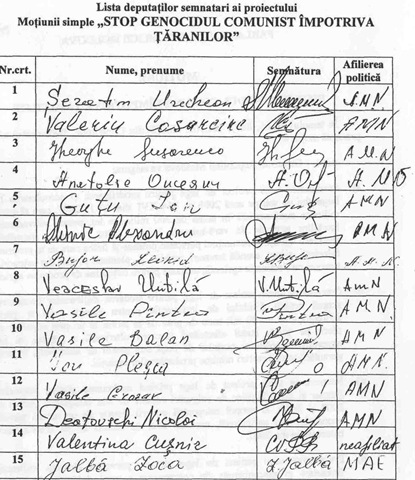 Lista deputaților semnatari ai proiectului
Moțiunii simple „STOP GENOCIDUL COMUNIST ÎMPOTRIVA
ȚĂRANILOR”
Nr.crt. Nume, prenume Semnătura Afilierea
politică
1 Serafim Urechean AMN
2 Valeriu Cosarciuc AMN
3 Gheorghe Susarenco A.M.N
4 Anatolie Onceanu
5 Guțu Ion AMN
6 Alexandru A.M.N
7 Bujor Leonid A.M.N.
8 Veaceslav Untilă V.Untilă AMN
9 Vasile Pîntea A.M.N.
10 Vasile Balan AMN
11 Ion Pleșca AMN.
12 Vasile AMN
13 Nicolai AMN
14 Valentina Cușnir neafiliat
15 Jalbă Zoia Z.Jalbă MAE